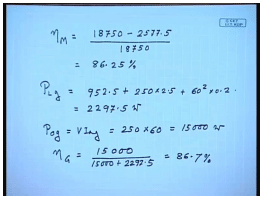 © CET
I.I.T. KGP
η_M = 18750 - 2577.5
18750
= 86.25%
P_Lg = 952.5 + 250×2.5 + 60²×0.2.
= 2297.5 w
P_og = V I_ag = 250×60 = 15000 w
η_G = 15000 = 86.7%
15000 + 2297.5